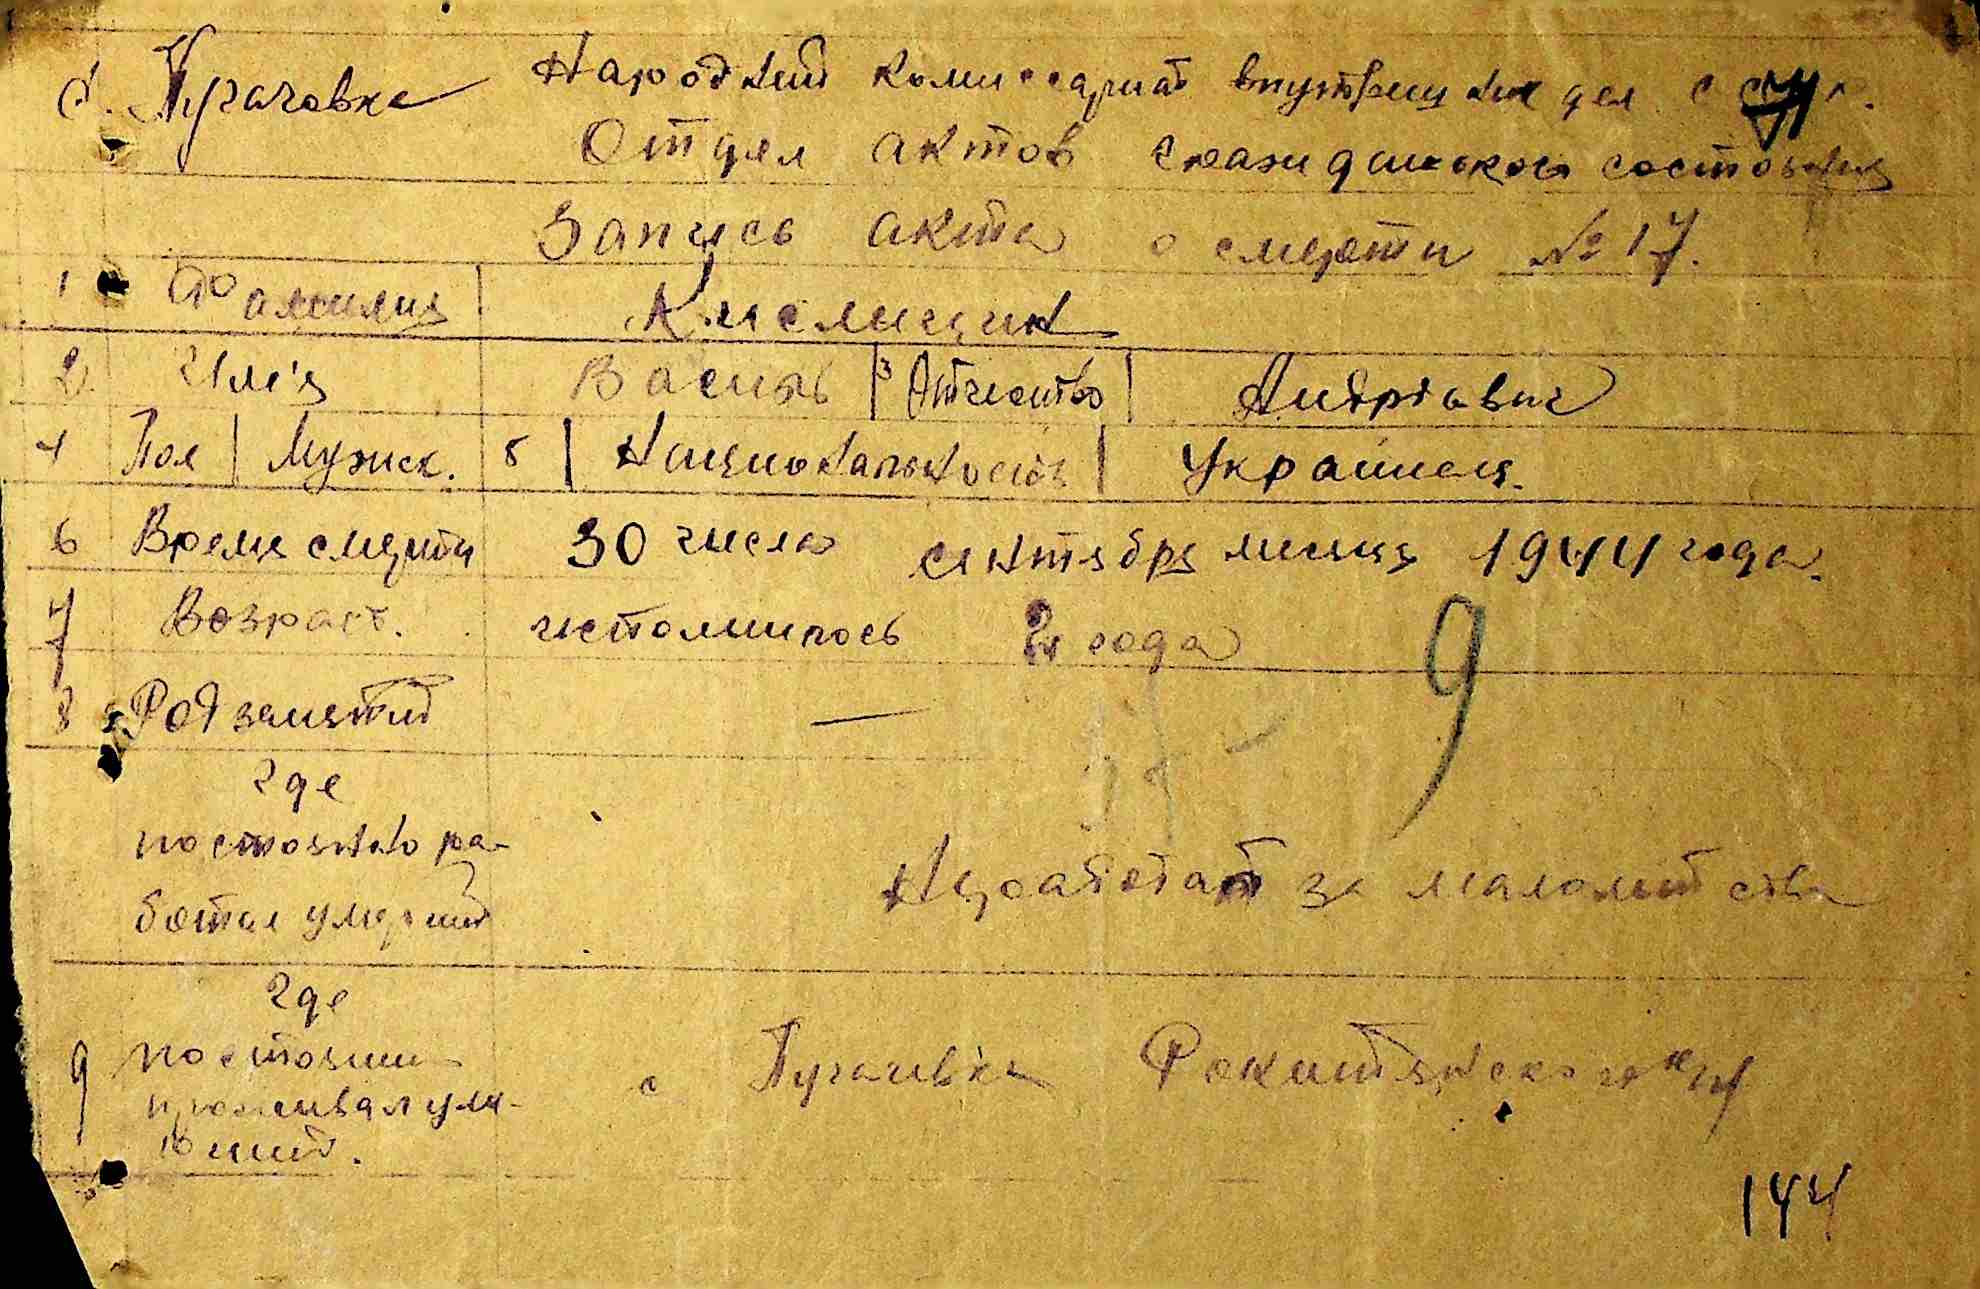 с. Пугачовка Народний комиссариат внутренних дел СССР.
Отдел актов гражданского состояния
Запись акта о смерти № 17.
1 Фамилия Кислицин
2 Им'я Василь 3 Отчество Андріевич
4 Пол Мужск. 5 Национальность Украинец.
6 Время смерти 30 числа сентября месяця 1944 года.
7 Возраст. исполнилось 2 года
9
8 Род занятий —
где
постоянно ра-
ботал умерший Неработал за малолетства
где
9 постоянно
проживал уме-
рший. с Пугачівка Рокитянского
144